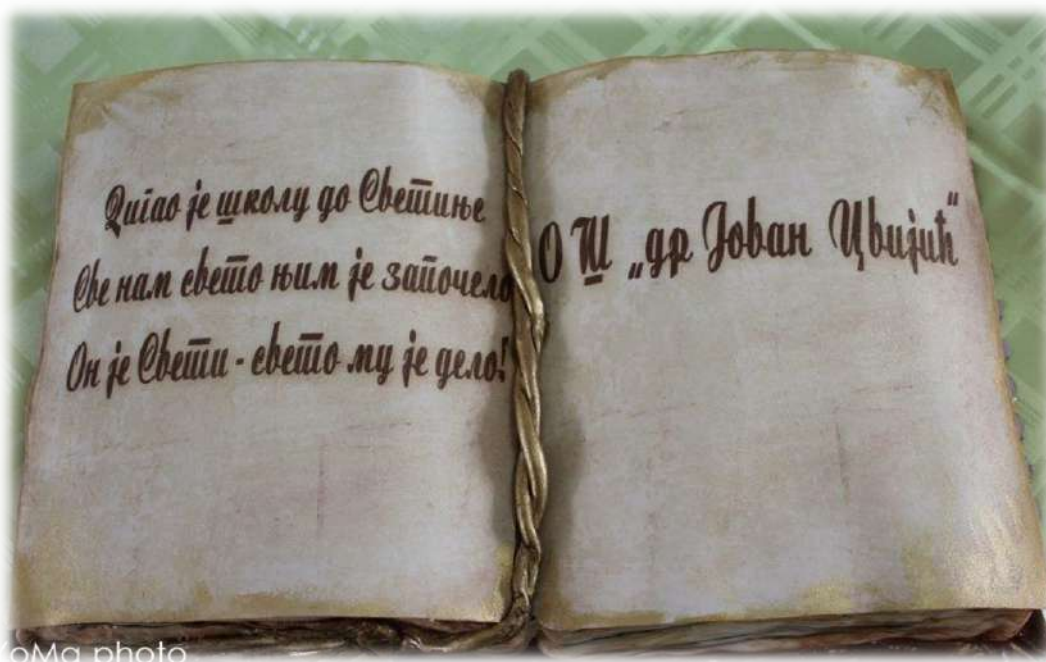 Дигао је школу до Светиње
Све нам свето њим је започело
Он је Свети - свето му је дело!
О Ш „др Јован Цвијић“
КоMa photo